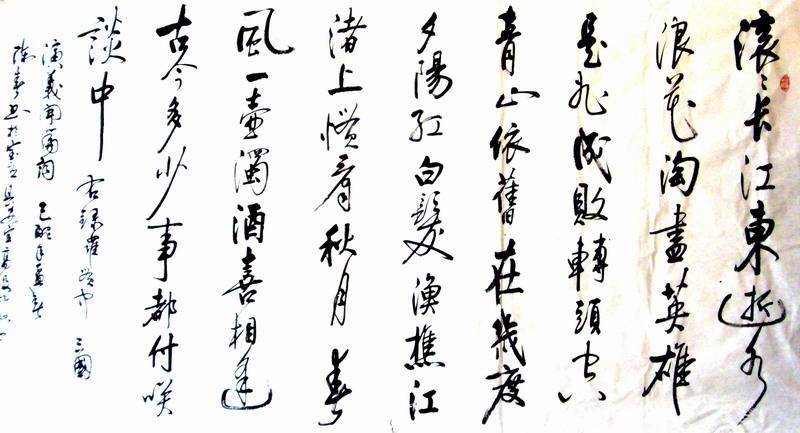 滚々长江東逝水
浪花淘盡英雄
是非成敗轉頭空
青山依舊在幾度
夕陽红白髮漁樵江
渚上惯看秋月春
風一壺濁酒喜相逢
古今多少事都付咲
談中 右録羅贯中 三國
演義開篇词